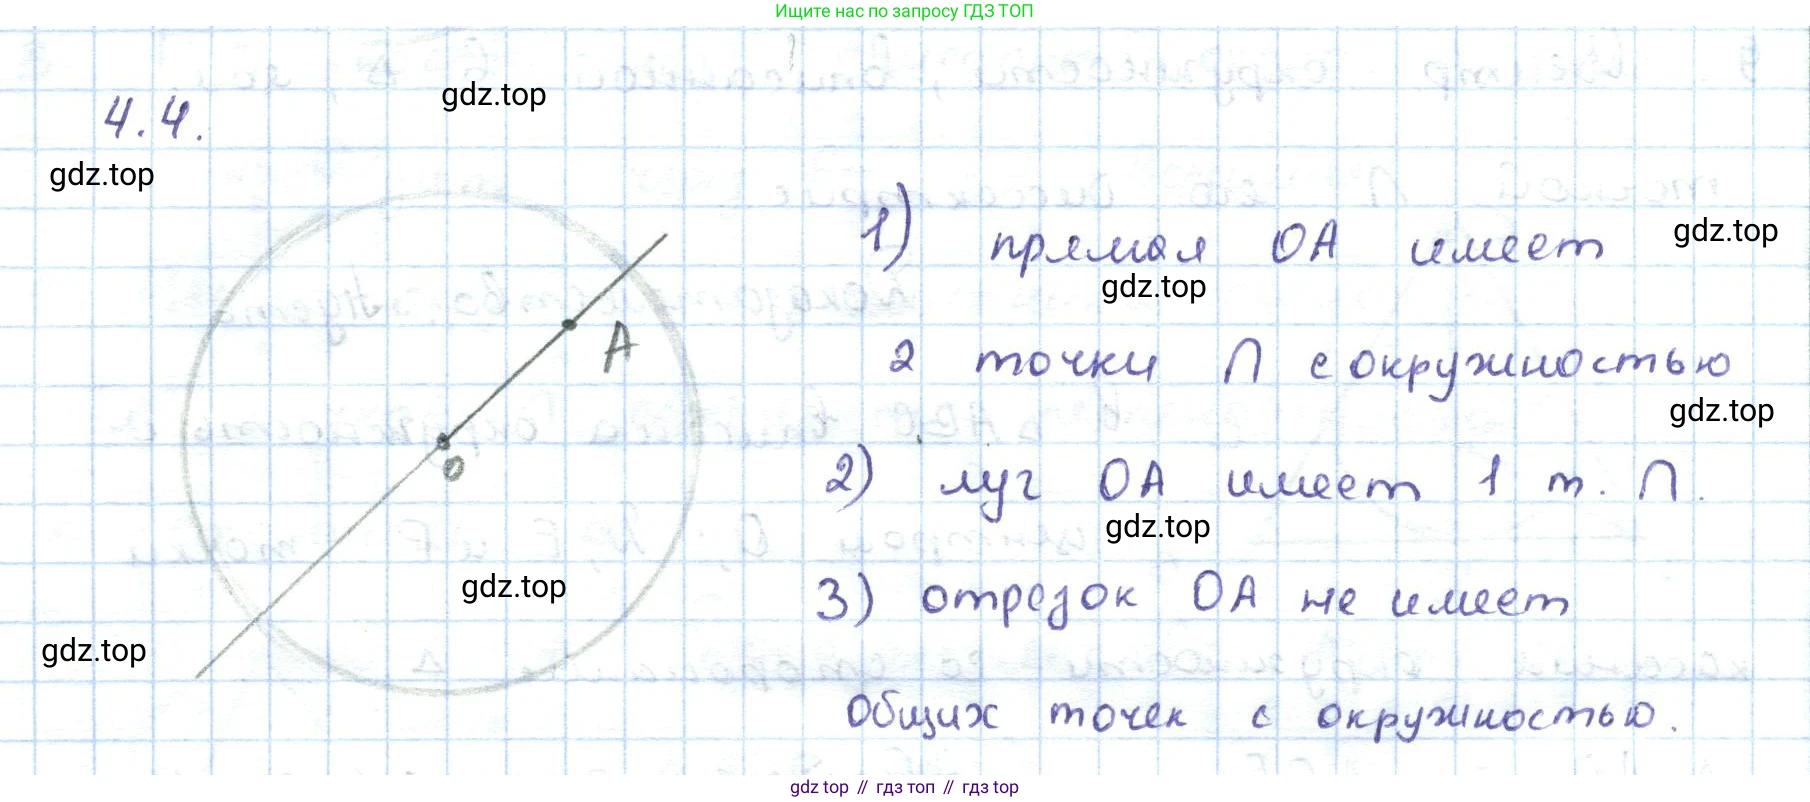 Ищите нас по запросу ГДЗ ТОП
4.4.
gdz.top
gdz.top
1) прямая OA имеет
gdz.top
gdz.top
2 точки ∩ с окружностью
A
gdz.top
O
2) луг OA имеет 1 т. ∩.
gdz.top
gdz.top
3) отрезок OA не имеет
gdz.top
общих точек с окружностью.
gdz top // гдз топ // гдз top